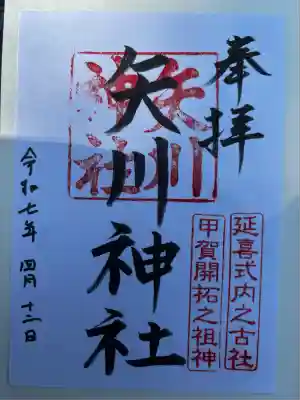 奉拝
延喜式内之古社
甲賀開拓之祖神
矢川神社
矢川神社
令和七年 四月 十二日